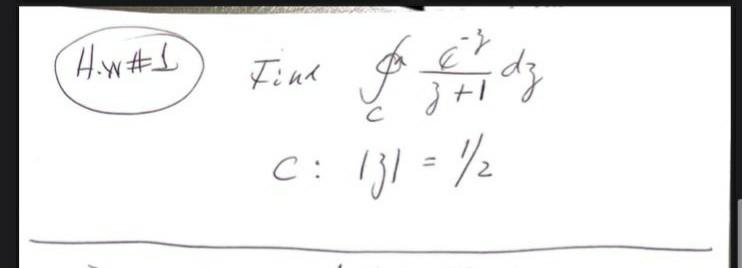 H.W#1 Find ∮_C e^{-z}/(z+1) dz
C: |z| = 1/2